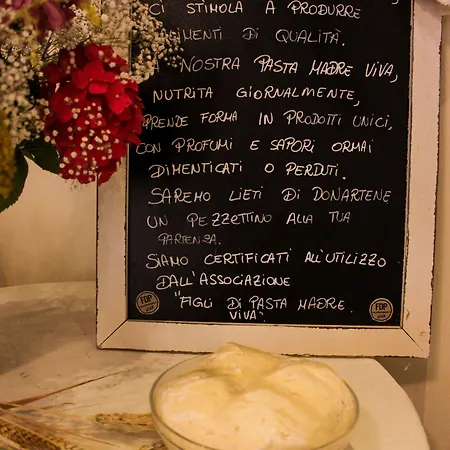 CI STIMOLA A PRODURRE
ALIMENTI DI QUALITÀ.
LA NOSTRA PASTA MADRE VIVA,
NUTRITA GIORNALMENTE,
PRENDE FORMA IN PRODOTTI UNICI,
CON PROFUMI E SAPORI ORMAI
DIMENTICATI O PERDUTI.
SAREMO LIETI DI DONARTENE
UN PEZZETTINO ALLA TUA
PARTENZA.
SIAMO CERTIFICATI ALL'UTILIZZO
DALL'ASSOCIAZIONE
"FIGLI DI PASTA MADRE
VIVA".
FDP
FDP